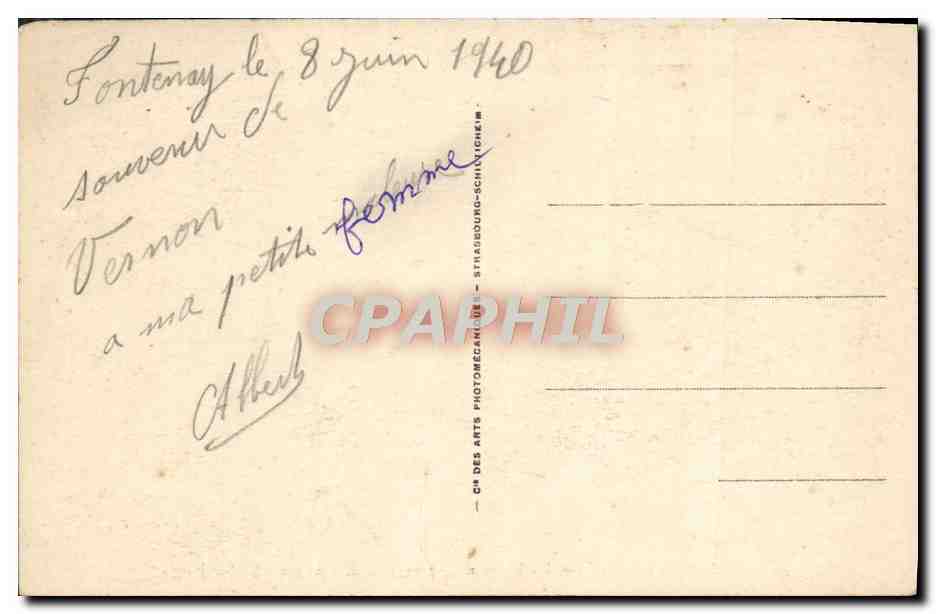 Fontenay le 8 juin 1940
souvenir de
Vernon
a ma petite femme
Albert
— Cie DES ARTS PHOTOMÉCANIQUES – STRASBOURG-SCHILTIGHEIM.
CPAPHIL